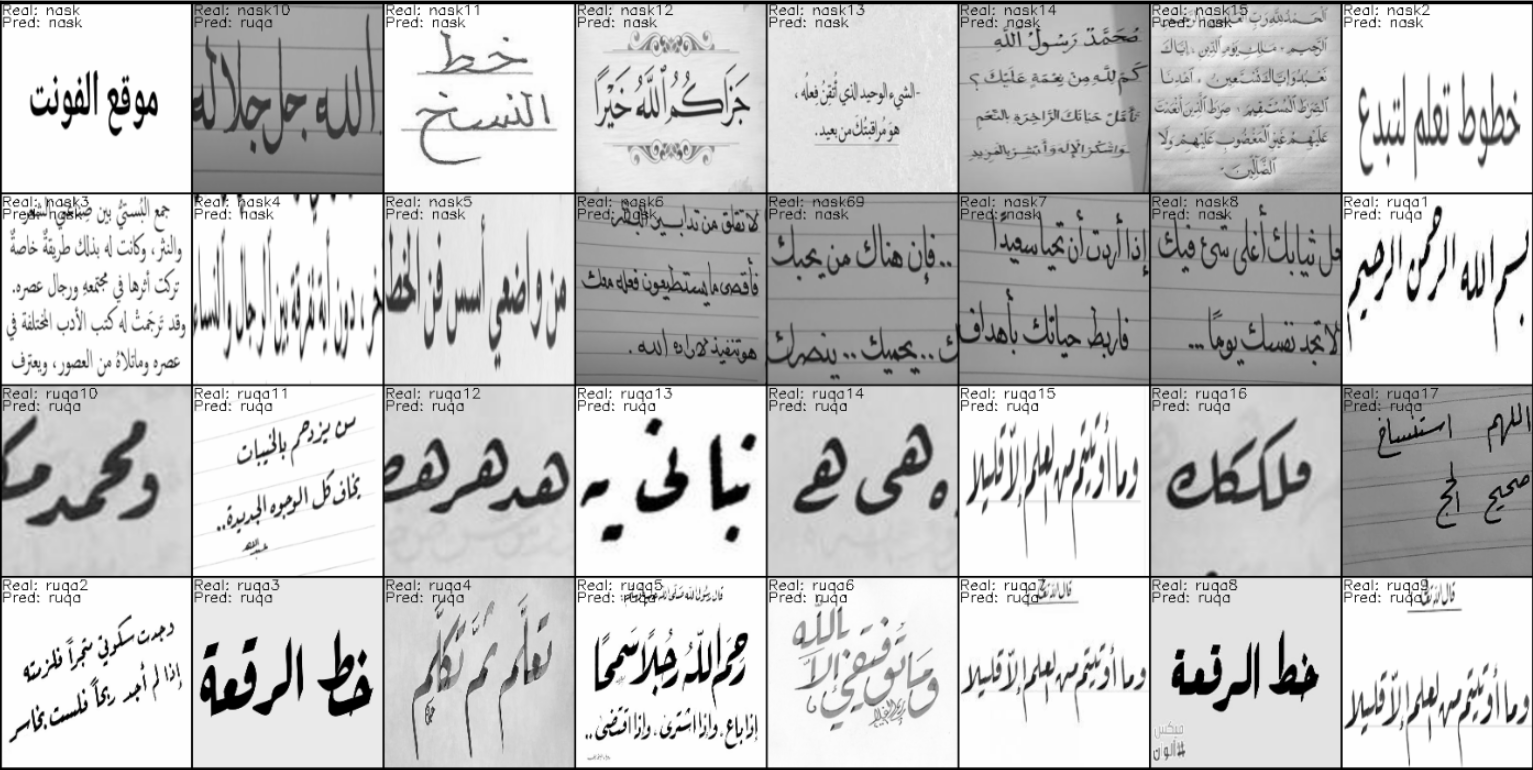 Real: nask
Pred: nask
موقع الفونت
Real: nask10
Pred: ruqa
الله جل جلاله
Real: nask11
Pred: nask
خط
النسخ
Real: nask12
Pred: nask
جَزَاكُمُ اللَّهُ خَيْرًا
Real: nask13
Pred: nask
- الشيء الوحيد الذي أتقنُ فعلُه ،
هوَ مُراقبتُكَ من بعيد .
Real: nask14
Pred: nask
مُحَمَّدْ رَسُولُ اللَّهِ
كَمْ لِلَّهِ مِنْ نِعْمَةٍ عَلَيْكَ ؟
Real: nask15
Pred: nask
الرَّحِيمِ . مَلِكِ يَوْمِ الدِّينِ . إِيَّاكَ
نَعْبُدُ وَإِيَّاكَ نَسْتَعِينُ . اهْدِنَا
الصِّرَاطَ الْمُسْتَقِيمَ . صِرَاطَ الَّذِينَ أَنْعَمْتَ
عَلَيْهِمْ غَيْرِ الْمَغْضُوبِ عَلَيْهِمْ وَلَا
الضَّالِّينَ .
Real: nask2
Pred: nask
خطوط تعلم لتبدع
Real: nask3
Pred: nask
جمع البُستيُّ بين صِناعتَي الشعر
والنثر ، وكانت له بذلك طريقةٌ خاصةٌ
تركت أثرها في مجتمعهِ ورجال عصره.
وقد تَرجَمتْ له كتب الأدب المختلفة في
عصره وماتلاهُ من العصور ، ويعترف
Real: nask4
Pred: nask
خر ، دون أية تفرقة بين الرجال والنساء
Real: nask5
Pred: nask
من واضعي أسس فن الخط
Real: nask6
Pred: nask
لا تقلق من تدابير البشر
فأقصى ما يستطيعون فعله معك
هو تنفيذ لإرادة الله .
Real: nask69
Pred: nask
.. فإن هناك من يحبك
ك .. يحميك .. ينصرك
Real: nask7
Pred: nask
إذا أردت أن تحيا سعيداً
فاربط حياتك بأهداف
Real: nask8
Pred: nask
ل ثيابك أغلى شئ فيك
لا تجد نفسك يومًا ...
Real: ruqa1
Pred: ruqa
بسم الله الرحمن الرحيم
Real: ruqa10
Pred: ruqa
ومحمد مك
Real: ruqa11
Pred: ruqa
من يزدحم بالخيبات
يخاف كل الوجوه الجديدة ..
Real: ruqa12
Pred: ruqa
هد هر هص
Real: ruqa13
Pred: ruqa
نبا نى يه
Real: ruqa14
Pred: ruqa
ه هى هے
Real: ruqa15
Pred: ruqa
وما أوتيتم من لعلم إلّا قليلا
Real: ruqa16
Pred: ruqa
فلككك
Real: ruqa17
Pred: ruqa
اللهم استنساخ
صحيح الحج
Real: ruqa2
Pred: ruqa
وجدت سكوتي متجراً فلزمته
إذا لم أجد ربحاً فلست بخاسر
Real: ruqa3
Pred: ruqa
خط الرقعة
Real: ruqa4
Pred: ruqa
تعلَّم ثمَّ تكلَّم
Real: ruqa5
Pred: ruqa
رحمَ اللّهُ رَجُلًا سَمحًا
إذا باع ، وإذا اشترى ، وإذا اقتضى ..
Real: ruqa6
Pred: ruqa
وَمَا تَوْفِيقِي إِلَّا بِاللَّهِ
Real: ruqa7
Pred: ruqa
قال الله تعالى
وما أوتيتم من لعلم إلّا قليلا
Real: ruqa8
Pred: ruqa
خط الرقعة
ميكس
#ألوان
Real: ruqa9
Pred: ruqa
قال الله تعالى
وما أوتيتم من لعلم إلّا قليلا